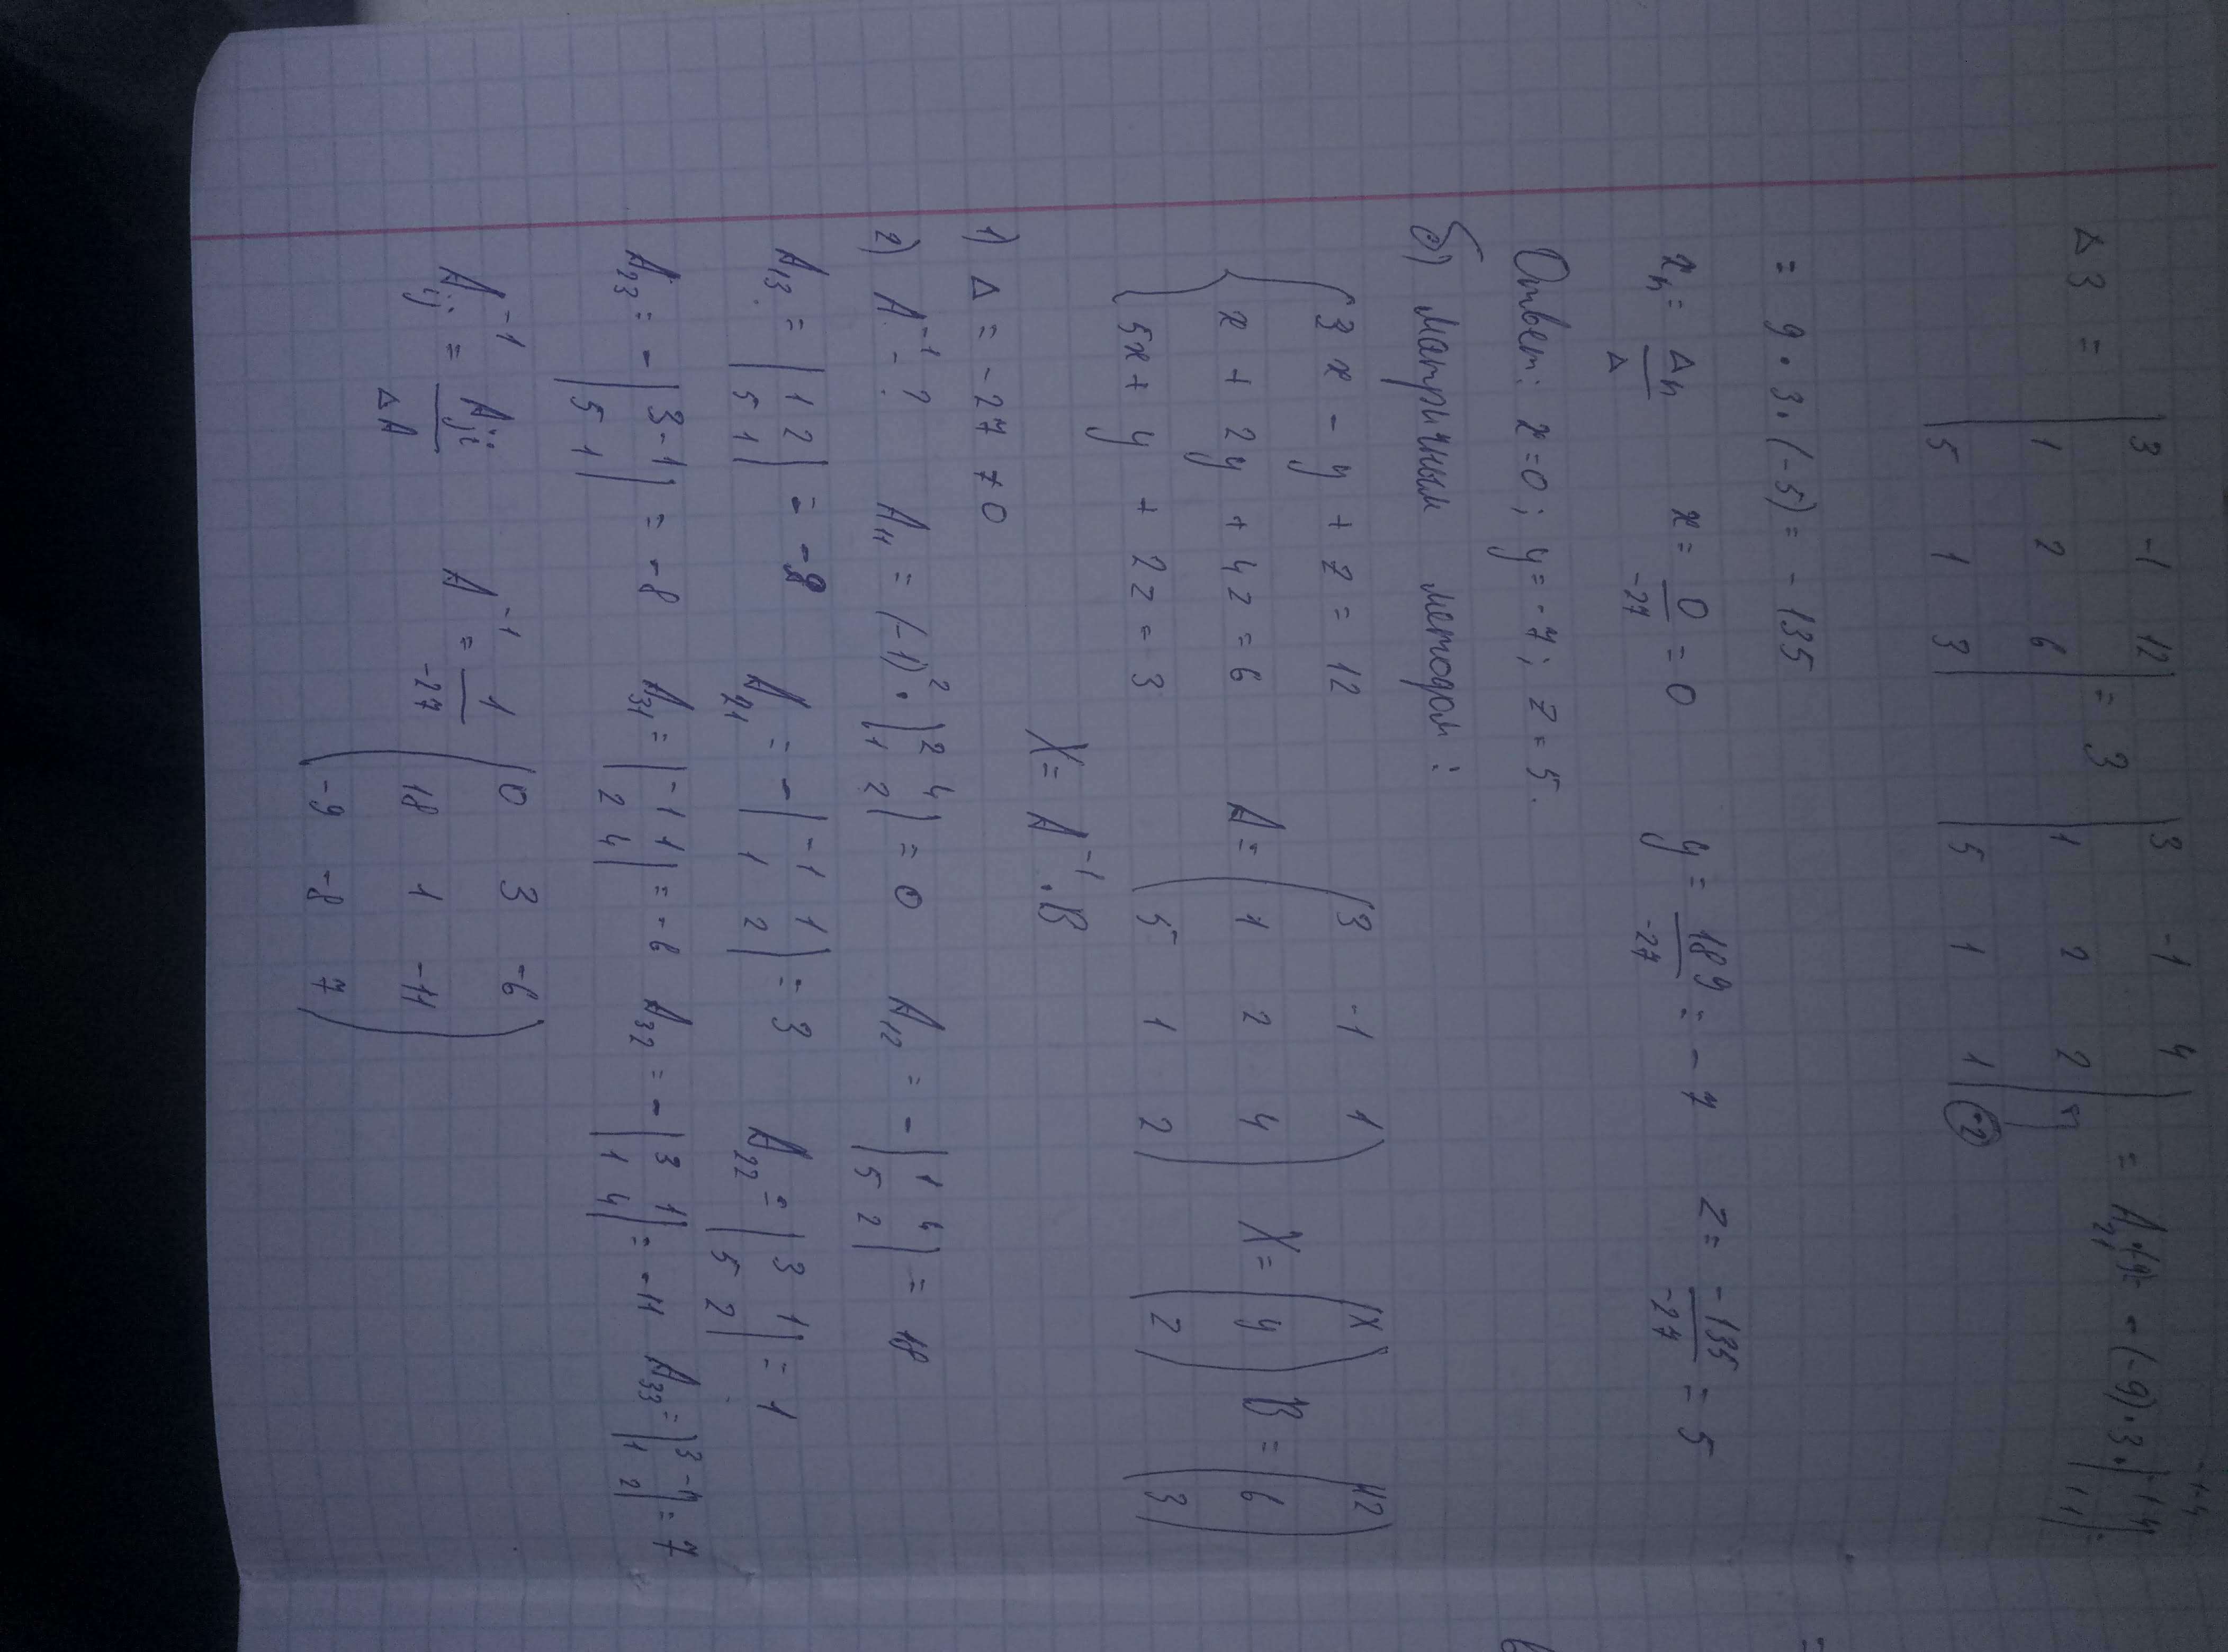 Δ3 = |3 -1 12; 1 2 6; 5 1 3| = 3 |3 -1 4; 1 2 2; 5 1 1| -2 = A21·(-9)= -(-9)·3·|-1 4; 1 1| =
= 9·3·(-5) = -135
xn = Δn/Δ x = 0/-27 = 0 y = 189/-27 = -7 z = -135/-27 = 5
Ответ: x=0; y=-7; z=5.
б) матричным методом:
{3x - y + z = 12 A = (3 -1 1; 1 2 4; 5 1 2) X = (x; y; z) B = (12; 6; 3)
x + 2y + 4z = 6
5x + y + 2z = 3
X = A^-1·B
1) Δ = -27 ≠ 0
2) A^-1 - ? A11 = (-1)^2·|2 4; 1 2| = 0 A12 = -|1 4; 5 2| = 18
A13 = |1 2; 5 1| = -9 A21 = -|-1 1; 1 2| = 3 A22 = |3 1; 5 2| = 1
A23 = -|3 -1; 5 1| = -8 A31 = |-1 1; 2 4| = -6 A32 = -|3 1; 1 4| = -11 A33 = |3 -1; 1 2| = 7
A^-1 ij = Aji/ΔA A^-1 = 1/-27 (0 3 -6; 18 1 -11; -9 -8 7)